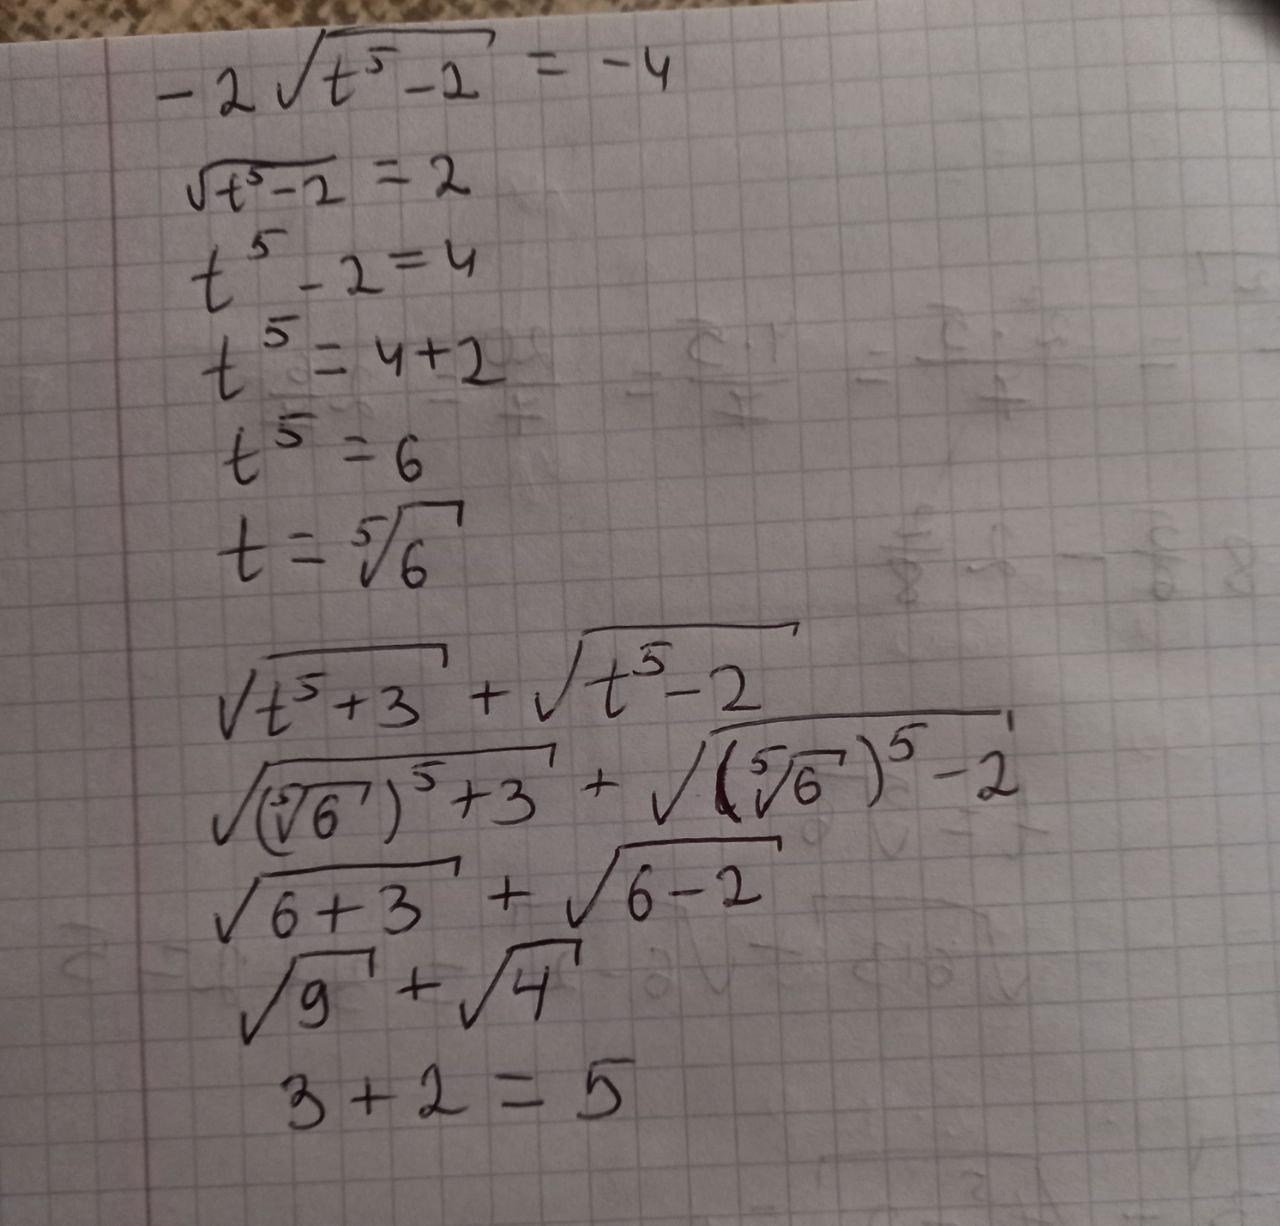 -2√(t⁵-2) = -4
√(t⁵-2) = 2
t⁵-2 = 4
t⁵ = 4+2
t⁵ = 6
t = ⁵√6
√(t⁵+3) + √(t⁵-2)
√((⁵√6)⁵+3) + √((⁵√6)⁵-2)
√(6+3) + √(6-2)
√9 + √4
3+2 = 5